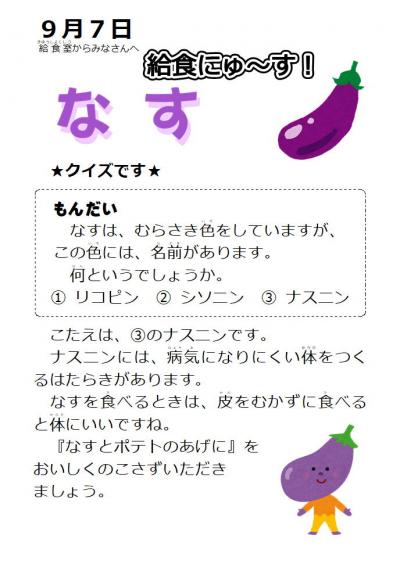 ９月７日
給食室からみなさんへ
給食にゅ～す！
なす
★クイズです★
もんだい
なすは、むらさき色をしていますが、
この色には、名前があります。
何というでしょうか。
① リコピン　② シソニン　③ ナスニン
こたえは、③のナスニンです。
ナスニンには、病気になりにくい体をつく
るはたらきがあります。
なすを食べるときは、皮をむかずに食べる
と体にいいですね。
『なすとポテトのあげに』を
おいしくのこさずいただき
ましょう。